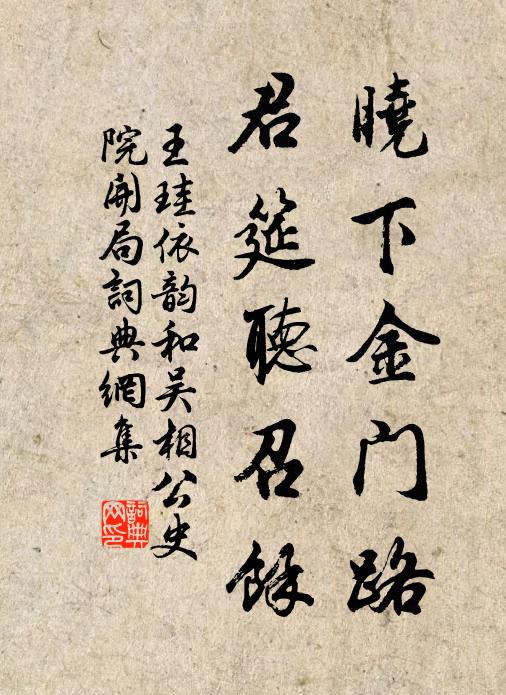 曉下金门路
君筵聽召餘
王珪依韵和吴相公史
院開局詞典網集
詞典
网印